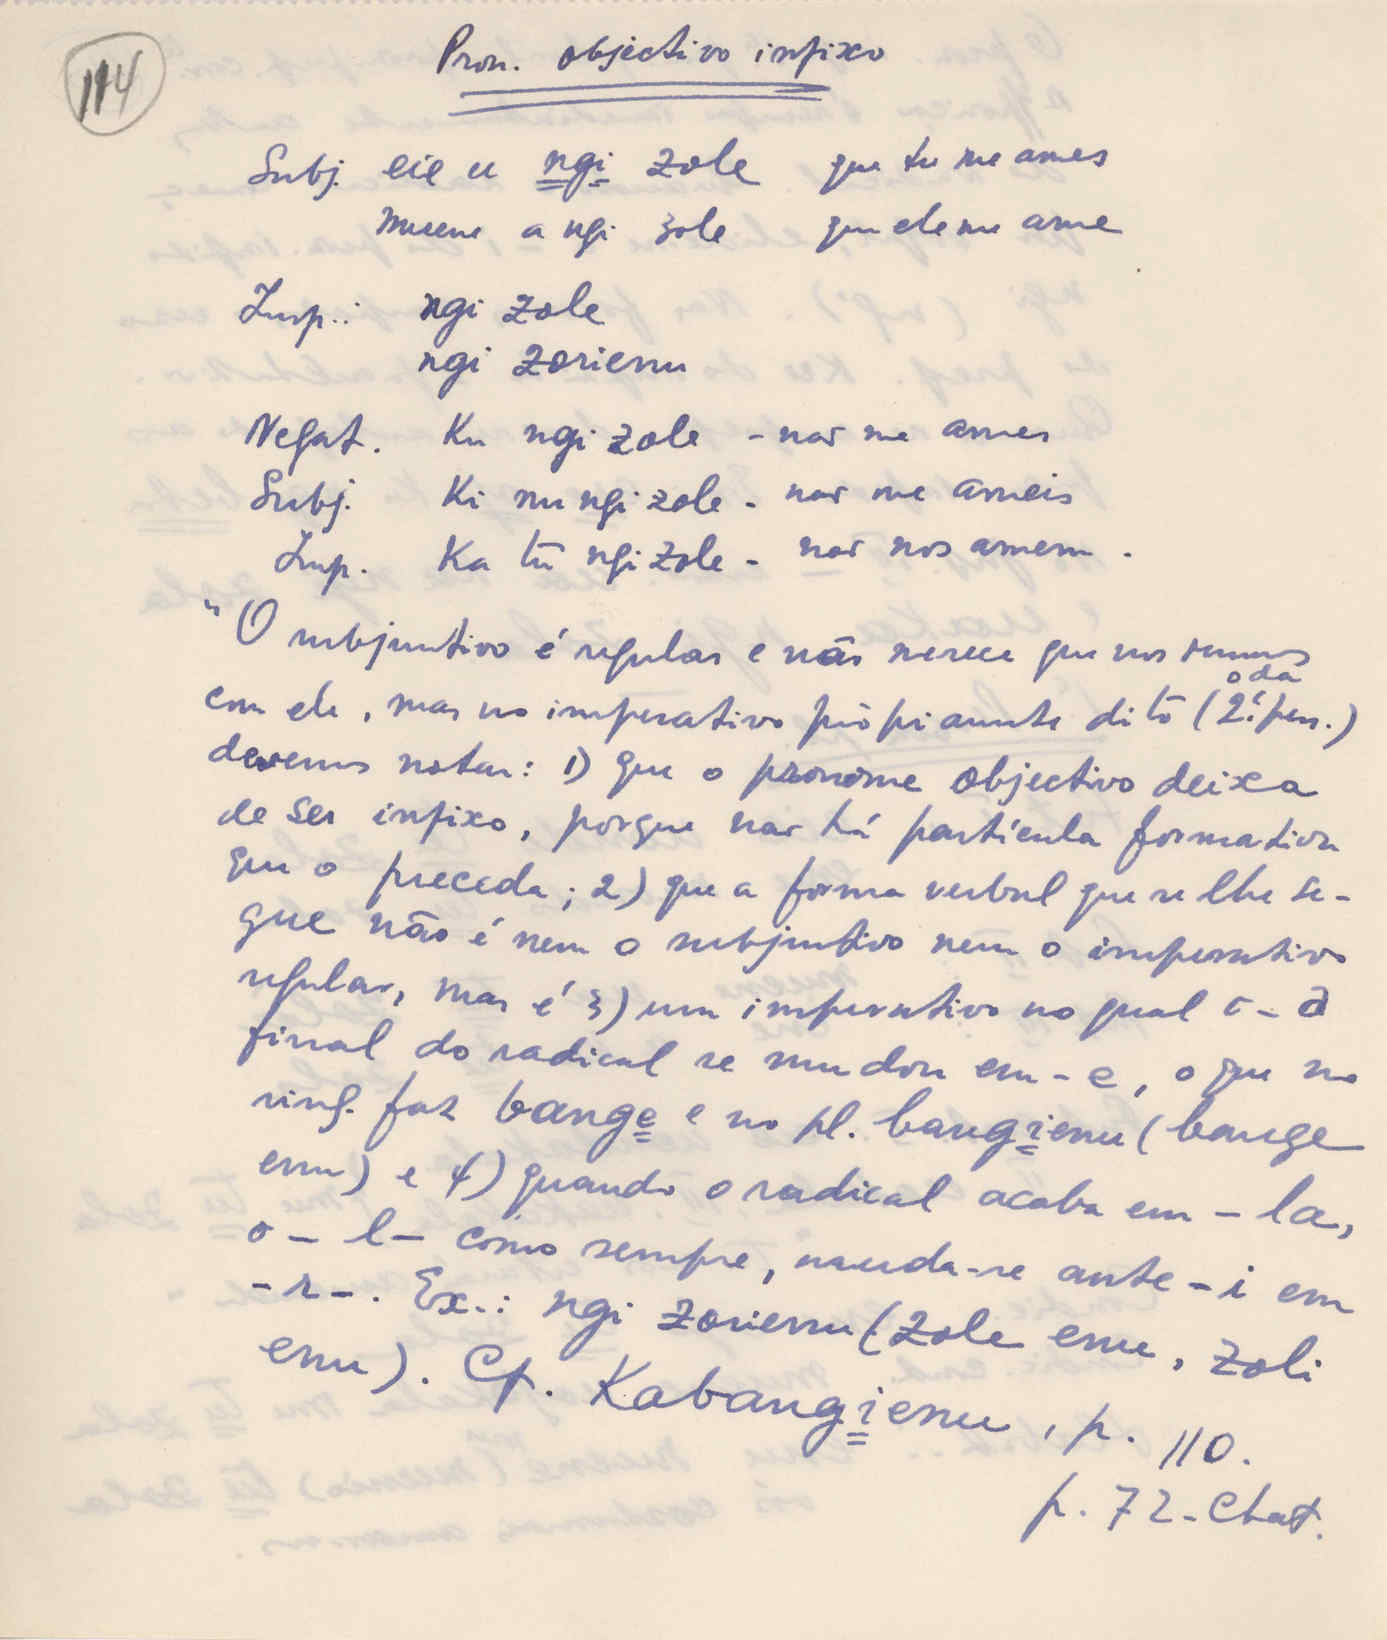 114
Pron. objectivo infixo
Subj. eie u ngi zole que tu me ames
muene a ngi zole que ele me ame
Imp.: ngi zole
ngi zorienu
Negat. Ku ngi zole - não me ames
Subj. Ki nu ngi zole - não me ameis
Imp. Ka tu ngi zole - não nos amem.
"O subjuntivo é regular e não merece que nos
com ele, mas no imperativo pròpriamente dito (o da 2.ª pess.)
devemos notar: 1) que o pronome objectivo deixa
de ser infixo, porque não há partícula formativa
que o preceda; 2) que a forma verbal que se lhe se-
gue não é nem o subjuntivo nem o imperativo
regular, mas é 3) um imperativo no qual o - a
final do radical se mudou em - e, o que no
sing. faz bange e no pl. bangienu (bange
enu) e 4) quando o radical acaba em - la,
o - l - como sempre, muda-se ante - i em
- r - . Ex.: ngi zorienu (zole enu, zoli
enu). Cf. Kabangienu, p. 110.
p. 72 - Chat.